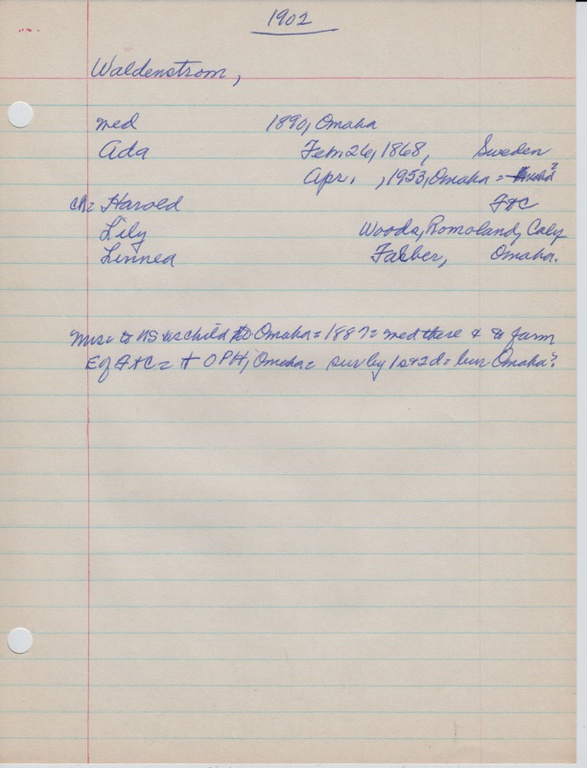 1902
Waldenstrom,
med 1890, Omaha
Ada Feb. 26, 1868, Sweden
Apr. , 1953, Omaha =
ch= Harold F+C
Lily Woods, Romoland, Calif
Linnea Falber, Omaha.
to US as child to Omaha = 1887 = med there & to farm
E of F+C = + OPH, Omaha = sur by 1s+2d = bur Omaha?